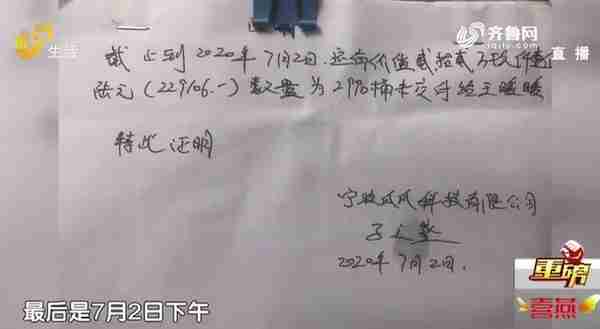 生活
齐鲁网
直播
截止到2020年7月2日.还有价值贰拾贰万玖仟
陆元(229106.-)数量为2990桶未交付给王暖暖
特此证明
宁波 科技有限公司
2020年7月2日.
最后是7月2日下午
重磅
喜燕